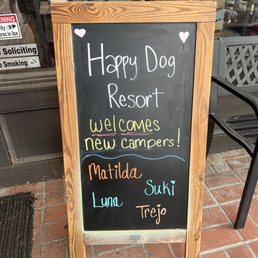 Happy Dog
Resort
welcomes
new campers!
Matilda
Suki
Luna
Trejo
o Soliciting
o Smoking